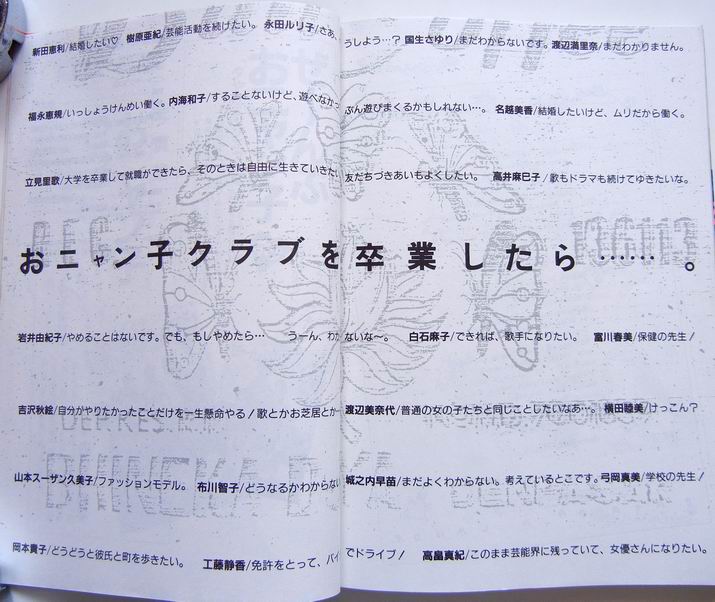 新田恵利/結婚したい♡ 樹原亜紀/芸能活動を続けたい。 永田ルリ子/さあ、うしよう…? 国生さゆり/まだわからないです。 渡辺満里奈/まだわかりません。
福永恵規/いっしょうけんめい働く。 内海和子/することないけど、遊べなかっぶん遊びまくるかもしれない…。 名越美香/結婚したいけど、ムリだから働く。
立見里歌/大学を卒業して就職ができたら、そのときは自由に生きていきたい 友だちづきあいもよくしたい。 高井麻巳子/歌もドラマも続けてゆきたいな。
おニャン子クラブを卒業したら……。
岩井由紀子/やめることはないです。でも、もしやめたら… うーん、わかないな〜。 白石麻子/できれば、歌手になりたい。 富川春美/保健の先生!
吉沢秋絵/自分がやりたかったことだけを一生懸命やる!歌とかお芝居とか 渡辺美奈代/普通の女の子たちと同じことしたいなあ…。 横田睦美/けっこん?
山本スーザン久美子/ファッションモデル。 布川智子/どうなるかわからない 城之内早苗/まだよくわからない。考えているとこです。 弓岡真美/学校の先生!
岡本貴子/どうどうと彼氏と町を歩きたい。 工藤静香/免許をとって、バイでドライブ! 高畠真紀/このまま芸能界に残っていて、女優さんになりたい。